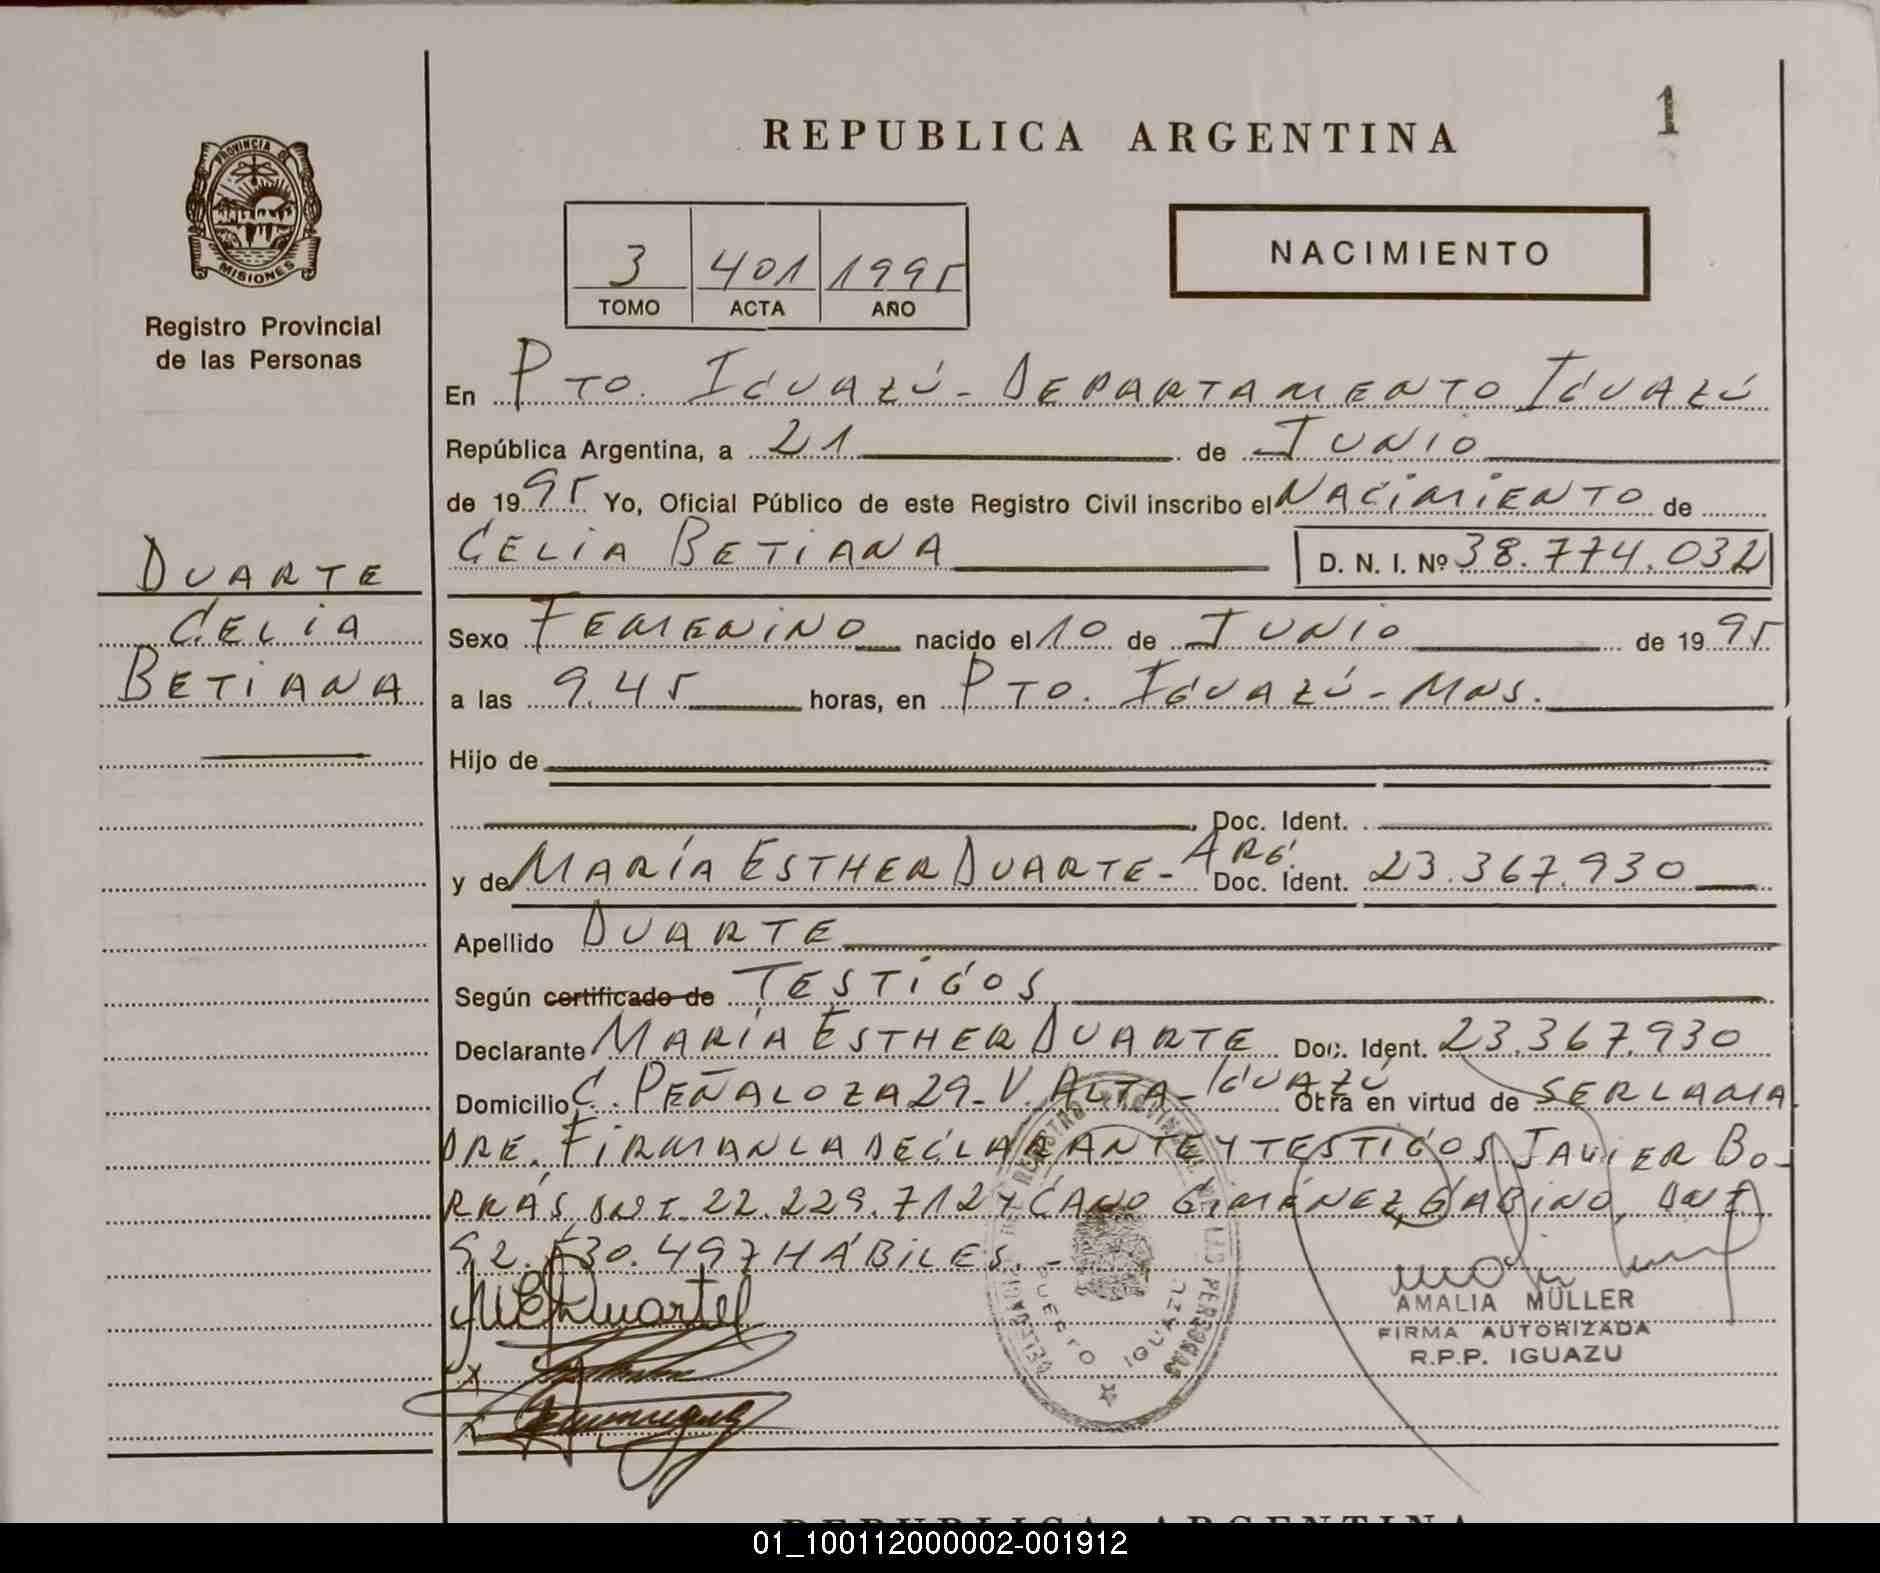 REPUBLICA ARGENTINA
1
PROVINCIA DE
MISIONES
Registro Provincial
de las Personas
3 401 1995
TOMO ACTA AÑO
NACIMIENTO
En PTO. IGUAZÚ - DEPARTAMENTO IGUAZÚ
República Argentina, a 21 de JUNIO
de 1995 Yo, Oficial Público de este Registro Civil inscribo el NACIMIENTO de
CELIA BETIANA D. N. I. Nº 38.774.032
DUARTE
CELIA
BETIANA
Sexo FEMENINO nacido el 10 de JUNIO de 1995
a las 9.45 horas, en PTO. IGUAZÚ - MNS.
Hijo de
Doc. Ident.
y de MARÍA ESTHER DUARTE - ARG. Doc. Ident. 23.367.930
Apellido DUARTE
Según certificado de TESTIGOS
Declarante MARÍA ESTHER DUARTE Doc. Ident. 23.367.930
Domicilio C. PEÑALOZA 29 - V. ALTA - IGUAZÚ Otra en virtud de SER LA MA
DRE. FIRMAN LA DECLARANTE Y TESTIGOS JAVIER BO-
RRÁS, DNI. 22.229.712 Y CANO GIMÉNEZ, GABINO, DNI
92. 30.497 HÁBILES.
M E Duarte
PUERTO IGUAZU
AMALIA MÜLLER
FIRMA AUTORIZADA
R.P.P. IGUAZU
REPUBLICA ARGENTINA
01_100112000002-001912